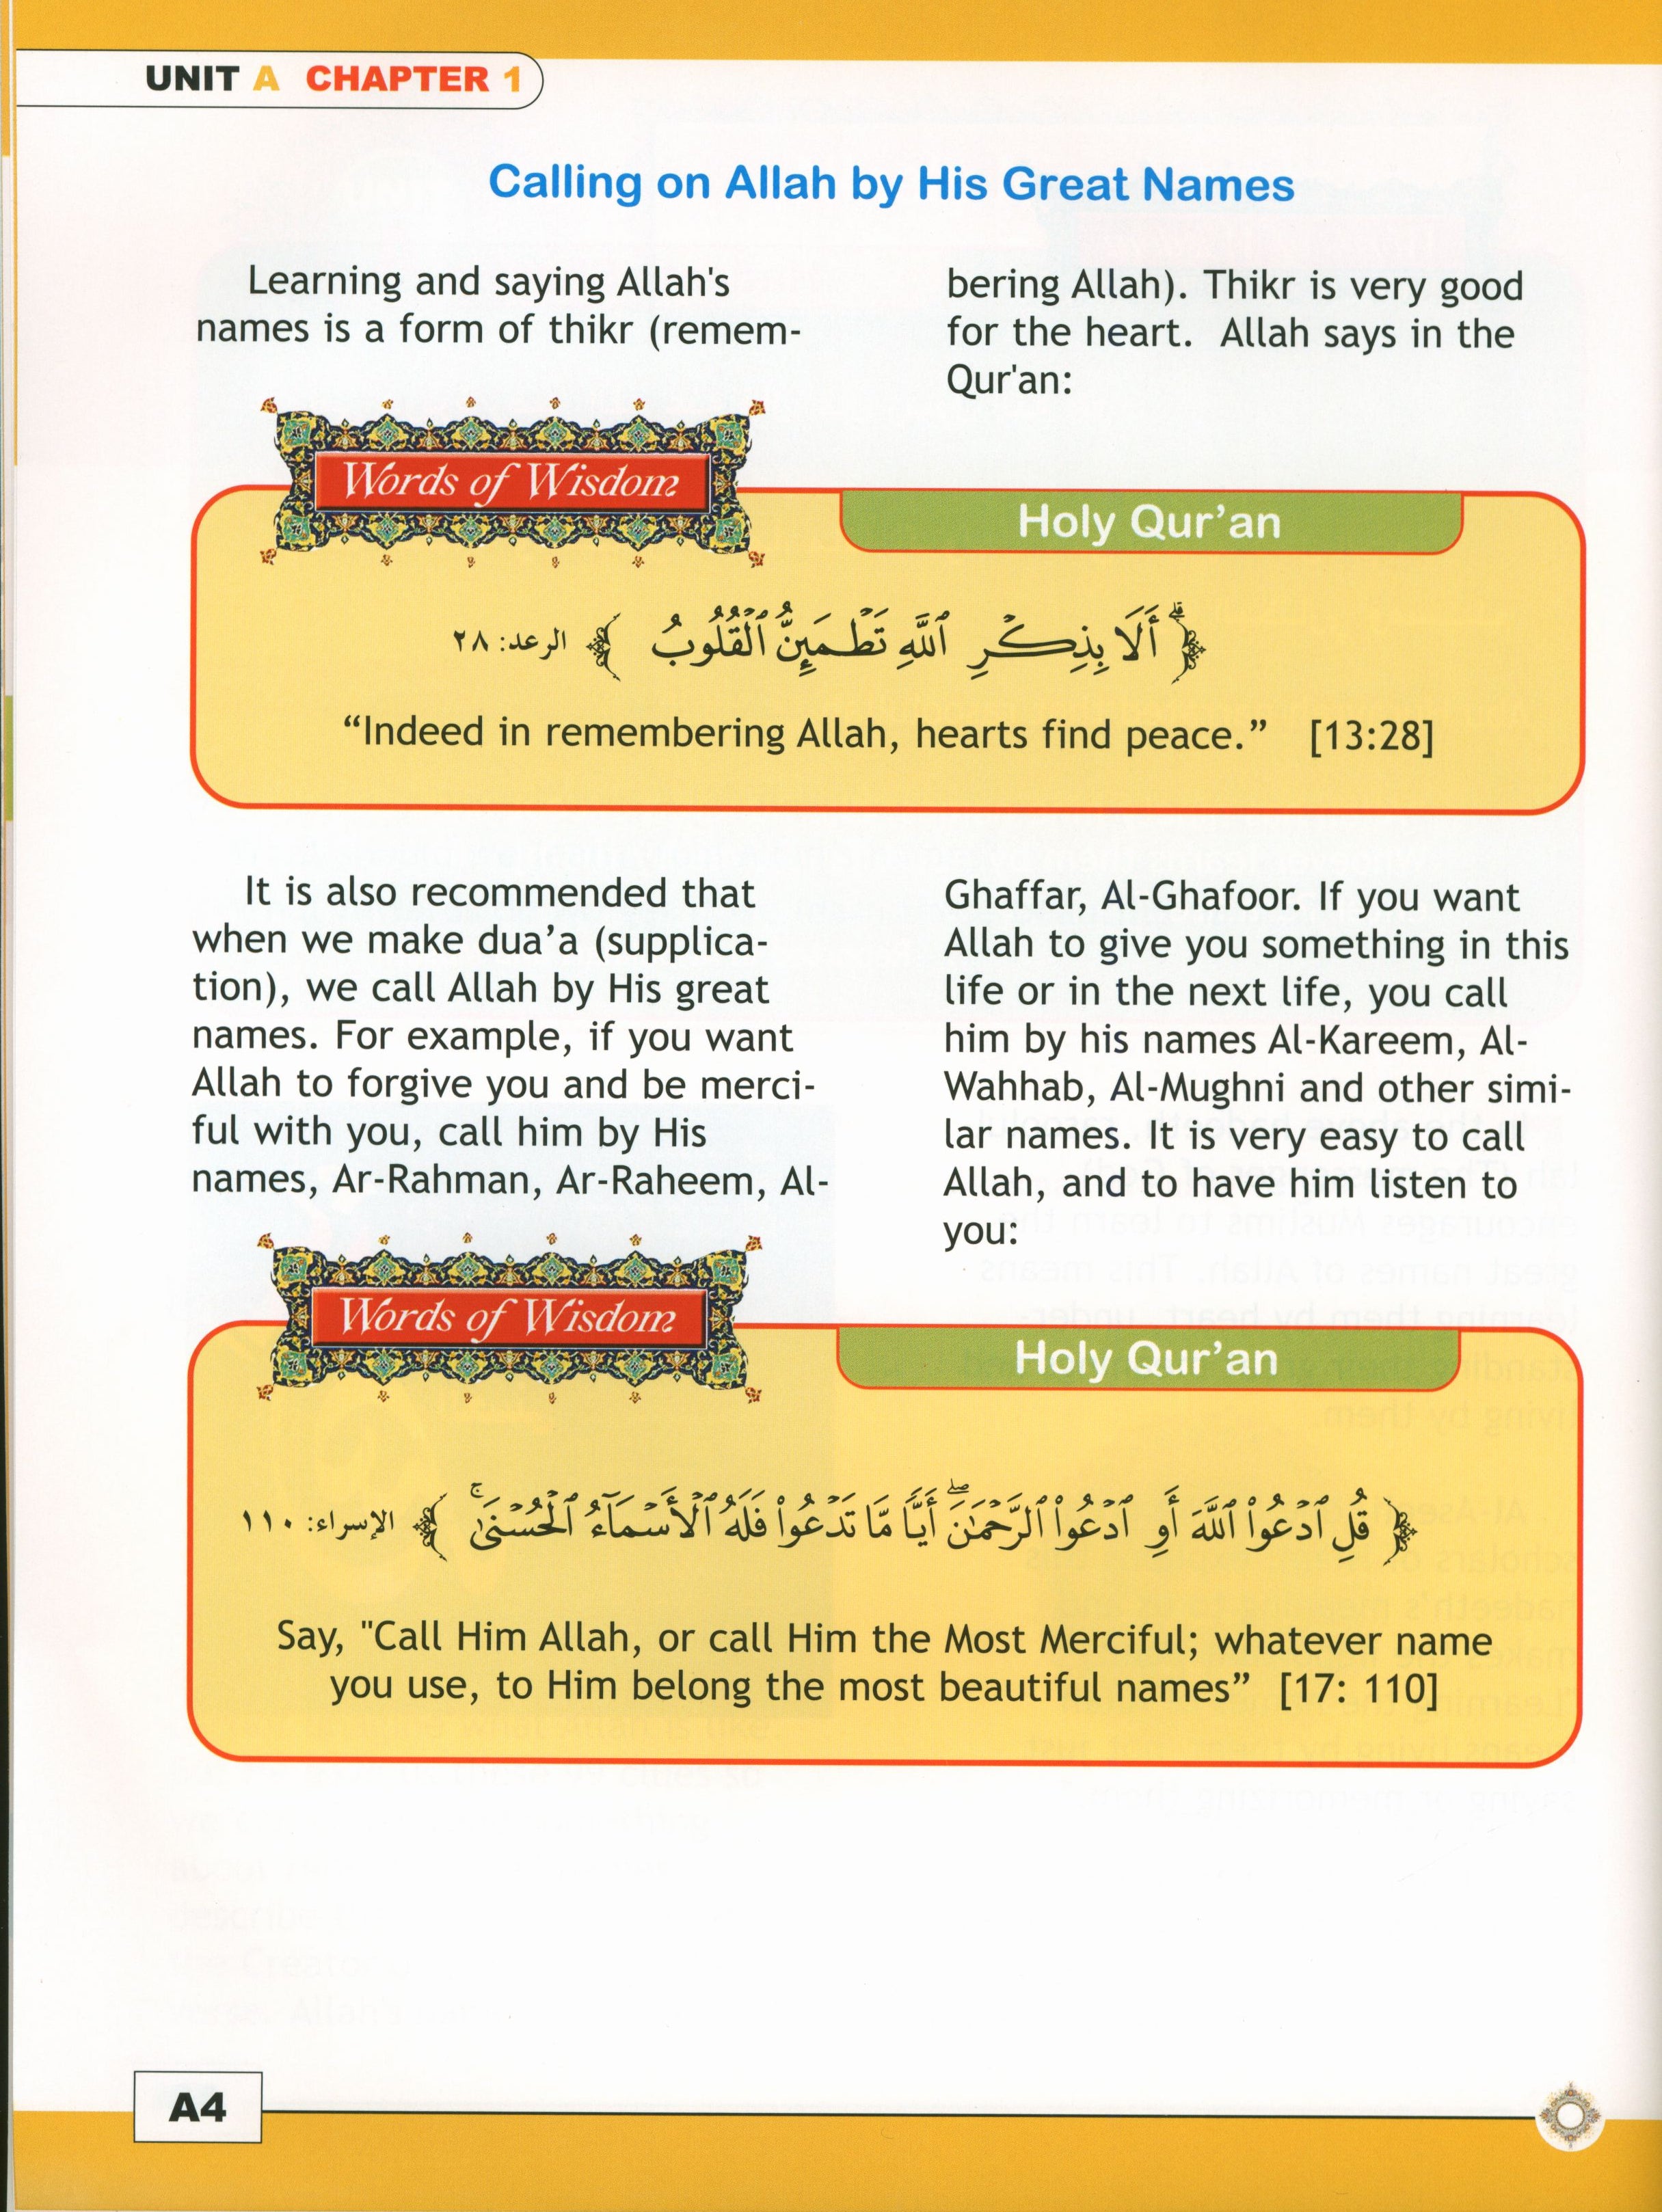 UNIT A CHAPTER 1
Calling on Allah by His Great Names
Learning and saying Allah's
names is a form of thikr (remem-
bering Allah). Thikr is very good
for the heart. Allah says in the
Qur'an:
Words of Wisdom
Holy Qur’an
﴿ أَلَا بِذِكْرِ ٱللَّهِ تَطْمَئِنُّ ٱلْقُلُوبُ ﴾ الرعد: ٢٨
“Indeed in remembering Allah, hearts find peace.” [13:28]
It is also recommended that
when we make dua’a (supplica-
tion), we call Allah by His great
names. For example, if you want
Allah to forgive you and be merci-
ful with you, call him by His
names, Ar-Rahman, Ar-Raheem, Al-
Ghaffar, Al-Ghafoor. If you want
Allah to give you something in this
life or in the next life, you call
him by his names Al-Kareem, Al-
Wahhab, Al-Mughni and other simi-
lar names. It is very easy to call
Allah, and to have him listen to
you:
Words of Wisdom
Holy Qur’an
﴿ قُلِ ٱدْعُوا۟ ٱللَّهَ أَوِ ٱدْعُوا۟ ٱلرَّحْمَـٰنَ ۖ أَيًّا مَّا تَدْعُوا۟ فَلَهُ ٱلْأَسْمَآءُ ٱلْحُسْنَىٰ ۚ ﴾ الإسراء: ١١٠
Say, "Call Him Allah, or call Him the Most Merciful; whatever name
you use, to Him belong the most beautiful names” [17: 110]
A4